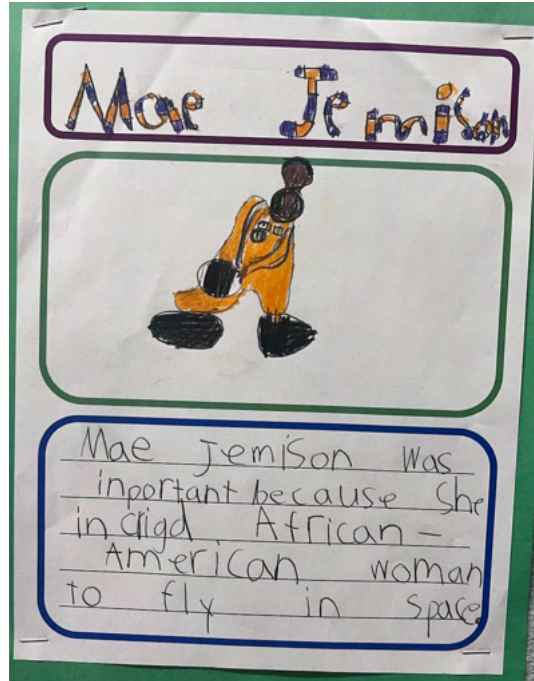 Mae Jemison
Mae Jemison was
inportant because she
incrigd African-
American woman
to fly in space.